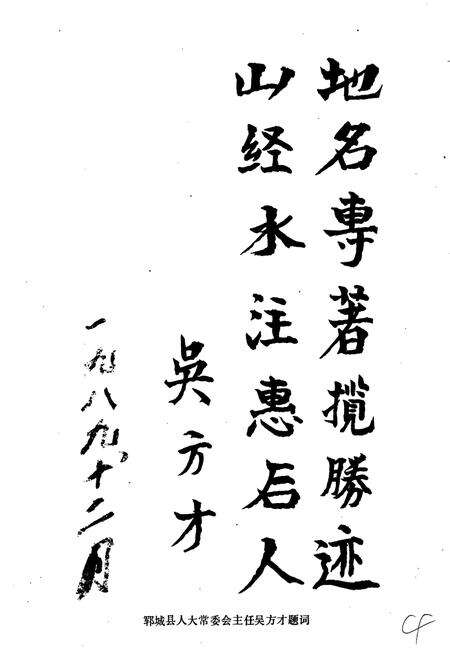 地名專著攬勝迹
山经水注惠后人
吳方才
一九八九、十二月
郓城县人大常委会主任吴方才题词
CF